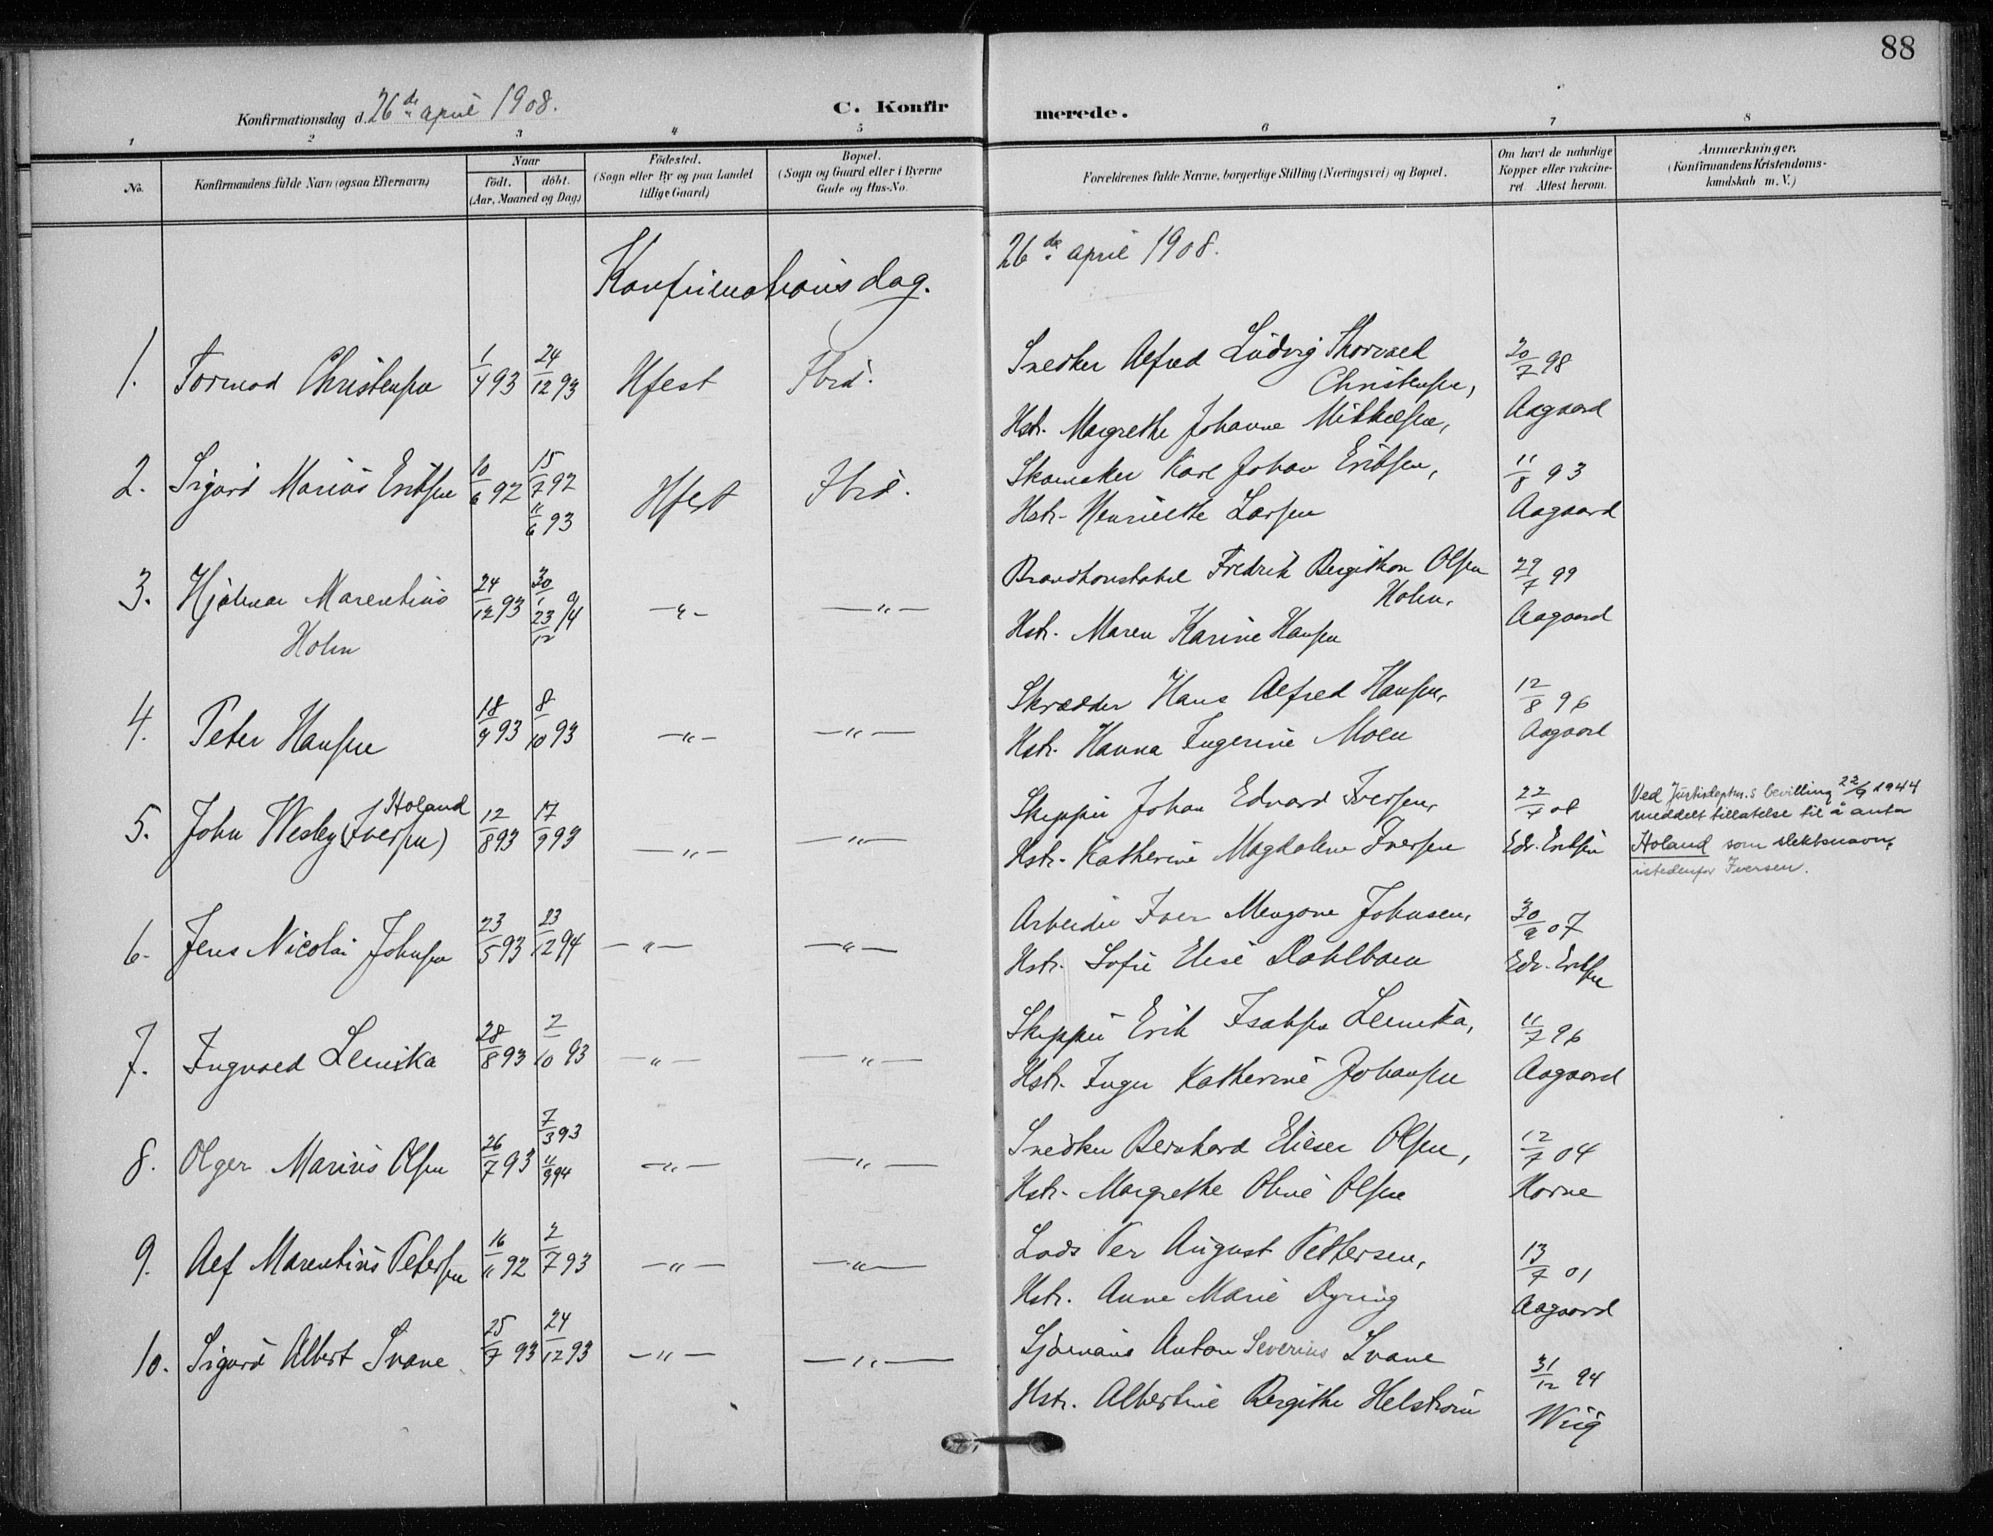 88
Konfirmationsdag d. 26de april 1908.
C. Konfirmerede.
1 2 3 4 5 6 7 8
No.
Konfirmandens fulde Navn (ogsaa Efternavn)
Naar
födt. döbt.
(Aar, Maaned og Dag)
Födested.
(Sogn eller By og paa Landet
tillige Gaard)
Bopæl.
(Sogn og Gaard eller i Byerne
Gade og Hus-No.
Forældrenes fulde Navne, borgerlige Stilling (Næringsvei) og Bopæl.
Om havt de naturlige
Kopper eller vakcine-
ret. Attest herom.
Anmærkninger.
(Konfirmandens Kristendoms-
kundskab m. V.)
Konfirmationsdag. 26de april 1908.
1. Tormod Christensen 1/4 93 24/12 93 Hfest Ibid. Snedker Alfred Ludvig Thorvald 20/7 98
Christensen,
Hstr. Margrethe Johanne Mikkelsen, Aagaard
2. Sigurd Marius Eriksen 10/6 92 15/7 92 Hfest Ibid. Skomaker Karl Johan Eriksen, 11/8 93
11/6 93 Hstr. Henriette Larsen Aagaard
3. Hjalmar Marentius 24/12 93 30/1 94 —"— —"— Brandkonstabel Fredrik Bergithon Olsen 29/7 99
Holm 23/12 Holm,
Hstr. Maren Karine Hansen Aagaard
4. Peter Hansen 18/9 93 8/10 93 —"— —"— Skrædder Hans Alfred Hansen, 12/8 96
Hstr. Hanna Ingerine Moen Aagaard
5. John Wesley (Iversen) Holand 12/8 93 17/9 93 —"— —"— Skipper Johan Edvard Iversen, 22/4 08
Hstr. Katherine Magdalene Iversen Edv. Eriksen
Ved Justisdeptm.s bevilling 22/9 1944
meddelt tillatelse til å anta
Holand som slektsnavn,
istedenfor Iversen.
6. Jens Nicolai Johnsen 23/5 93 23/12 94 —"— —"— Arbeider Iver Mengone Johnsen, 30/9 07
Hstr. Sofie Elise Dahlboen Edv. Eriksen
7. Ingvald Lemika 28/8 93 2/10 93 —"— —"— Skipper Erik Isaksen Lemika, 11/7 96
Hstr. Inger Katherine Johansen Aagaard
8. Olger Marius Olsen 26/7 93 7/3 93 —"— —"— Snedker Bernhard Elieser Olsen, 12/7 04
11/9 94 Hstr. Margrethe Oline Olsen Horne
9. Alf Marentius Petersen 16/11 92 2/7 93 —"— —"— Lods Per August Pettersen, 13/7 01
Hstr. Anne Marie Dyring Aagaard
10. Sigurd Albert Svane 25/7 93 24/12 93 —"— —"— Sjømand Anton Severius Svane 31/12 94
Hstr. Albertine Bergithe Helstrøm Wiig